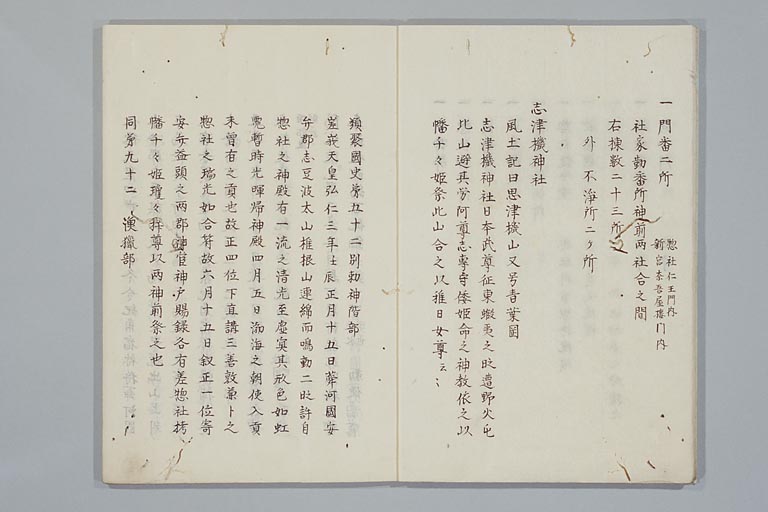 一門番二所
惣社仁王門内
新宮奈吾屋楼門内
社家勤番所神前両社合之間
右棟数二十三所
外不浄所二ヶ所
志津機神社
風土記曰思津機山又号青葉岡
志津機神社日本武尊征東蝦夷之时遭野火屯
此山避其労阿尊忘専寺倭姫命之神教依之以
幡千々姫祭此山合之以稚日女尊云々
類聚國史第五十二別勅神階部
嵯峨天皇弘仁三年壬辰正月十五日駿河國安
弁郡志豆波太山椎根山連綿而鳴動二时許自
惣社之神殿有一流之清光至虚冥其放色如虹
霓暫時光暉帰神殿四月五日渤海之朝使入貢
未曾有之貢也故正四位下直講三善敦兼卜之
惣社之瑞光如合符故六月十五日叙正一位寄
安弁益頭之両郡神官神戸賜録各有差惣社栲
幡千々姫瓊々杵尊以両神前祭之也
同第九十二漁獵部